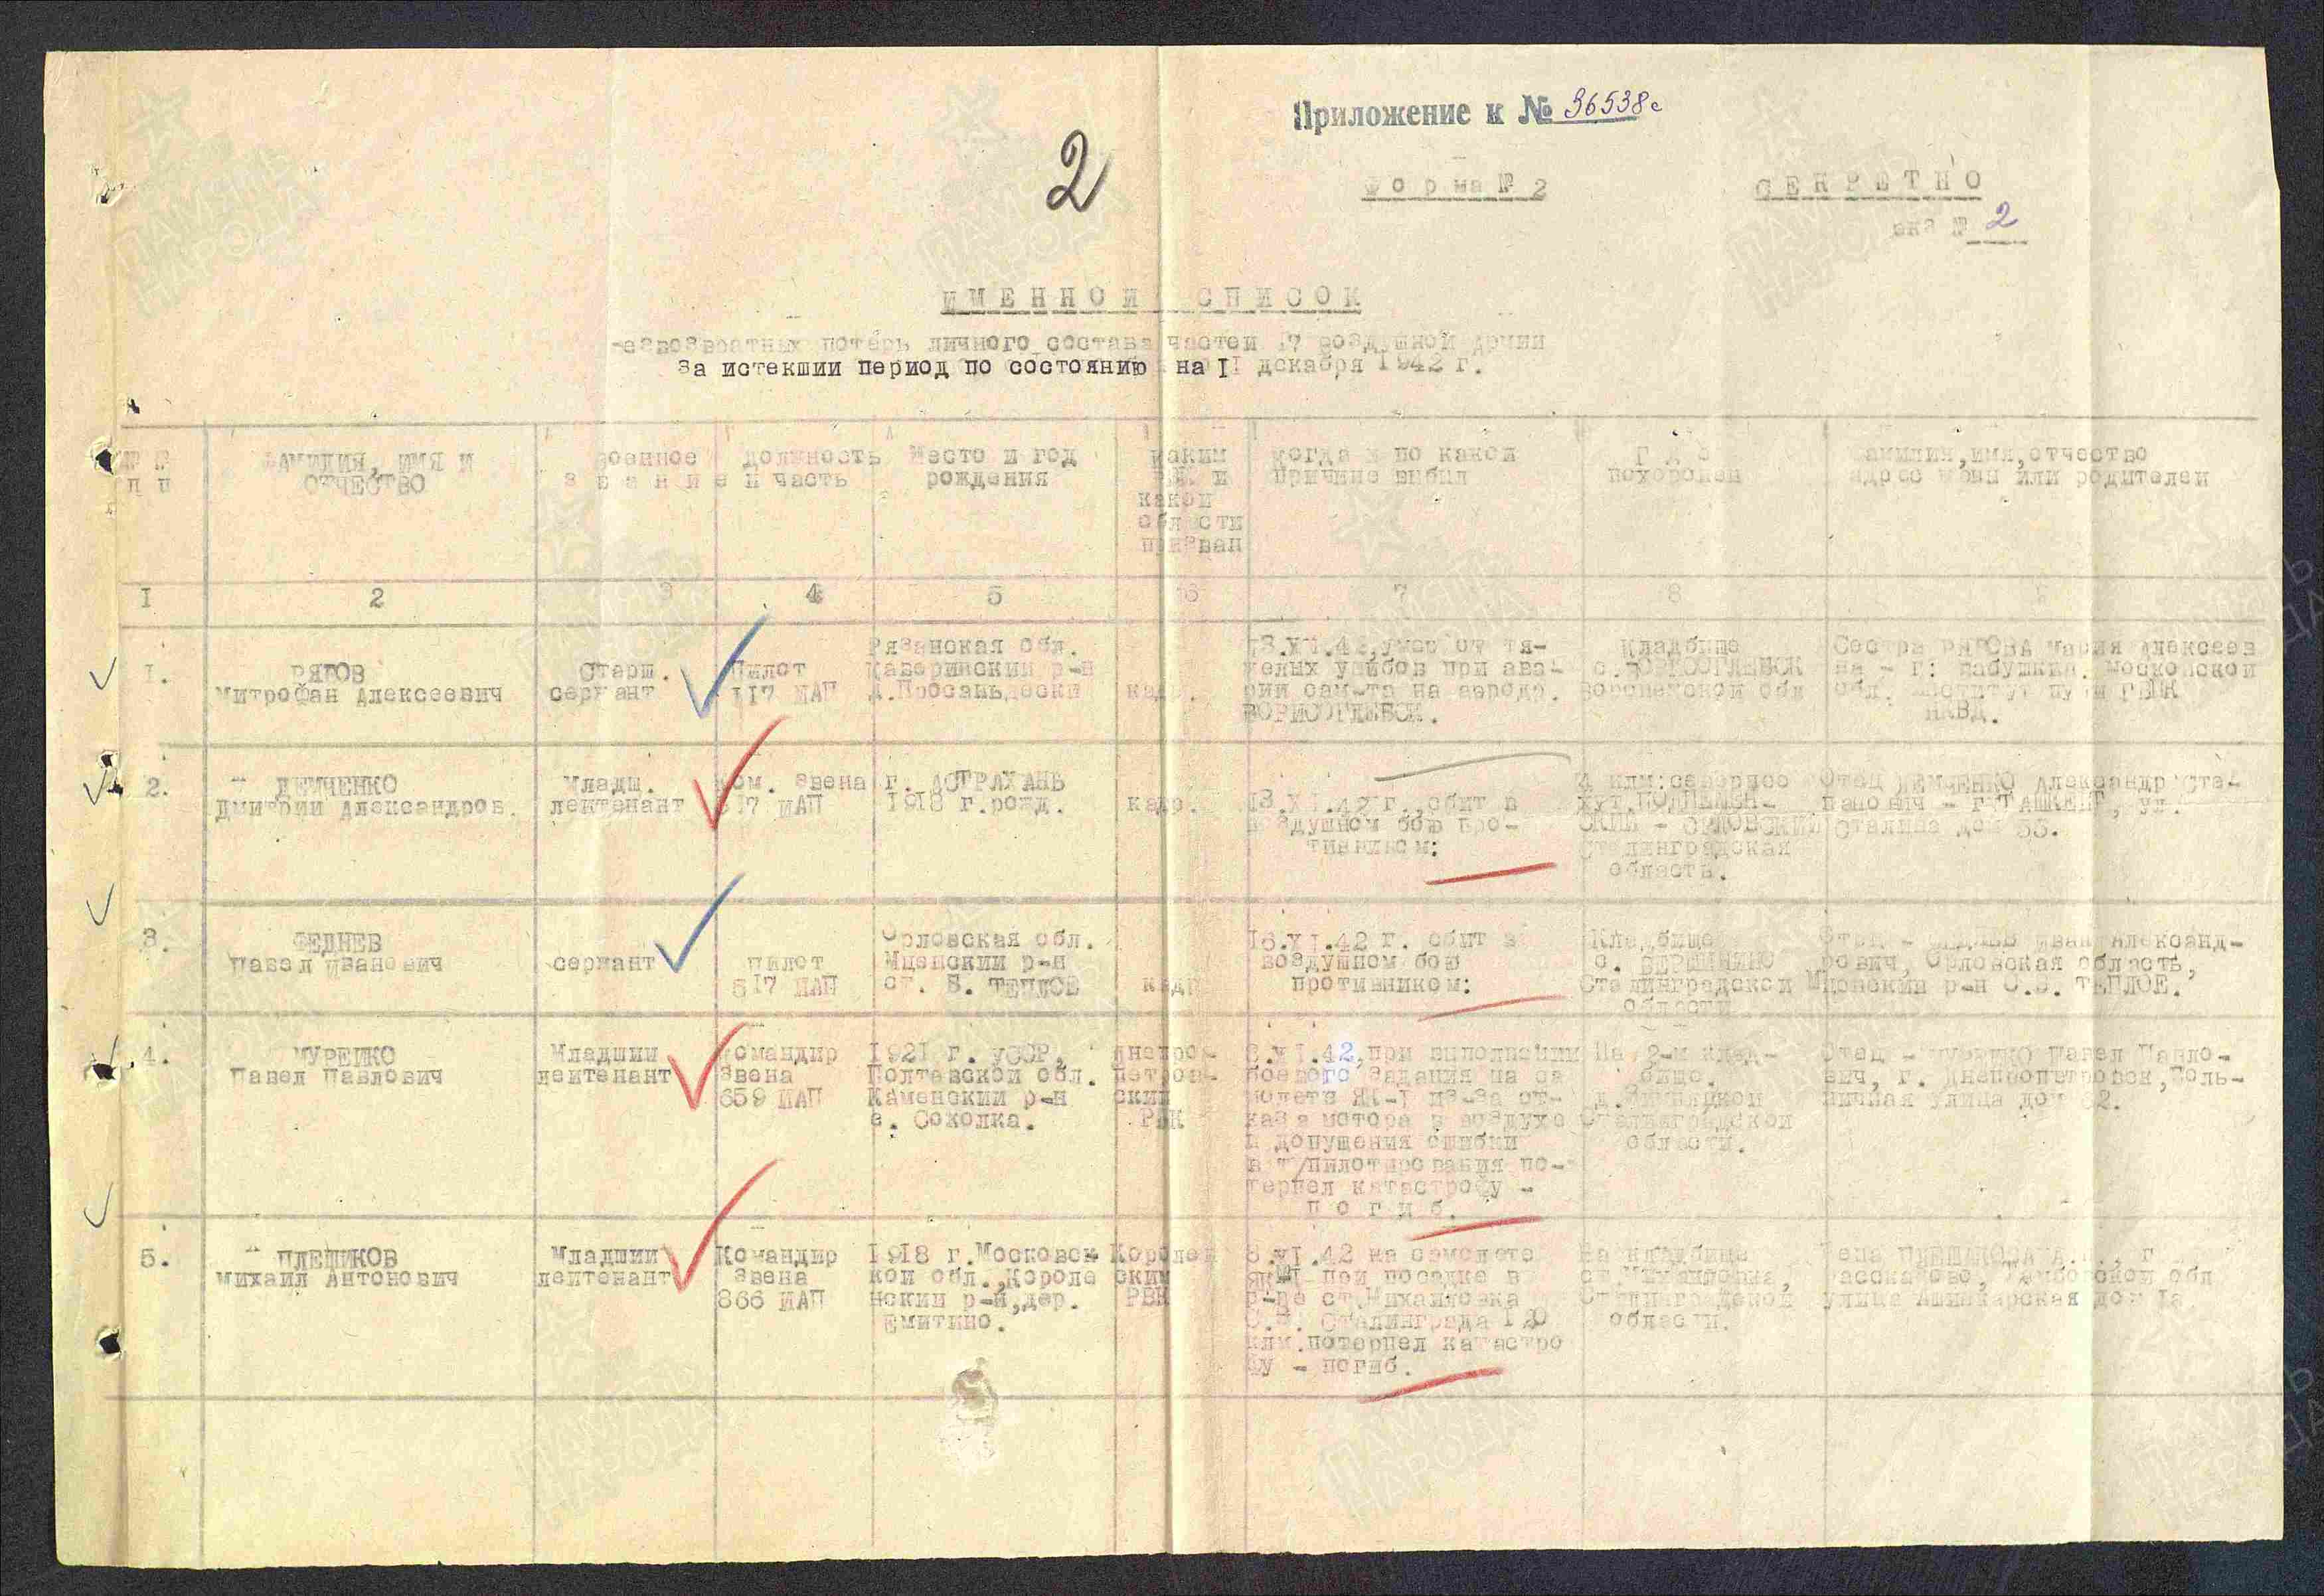 Приложение к № 36538с
2
Форма № 2
СЕКРЕТНО
экз № 2
ИМЕННОЙ СПИСОК
безвозвратных потерь личного состава частей 17 Воздушной Армии
за истекший период по состоянию на II декабря 1942 г.
№№ п п
ФАМИЛИЯ, ИМЯ И
ОТЧЕСТВО
Военное
звание
Должность
и часть
Место и год
рождения
Каким
и
какой
области
призван
Когда и по какой
причине выбыл
Где
похоронен
Фамилия, имя, отчество
адрес жены или родителей
I 2 3 4 5 6 7 8 9
I.
РЯГОВ
Митрофан Алексеевич
Старш.
сержант
Пилот
ИАП
Рязанская обл.
Каверинский р-н
кадр.
13.XI.42, умер от тя-
желых ушибов при ава-
рии сам-та на аэродр.
БОРИСОГЛЕБСК.
Кладбище
г. БОРИСОГЛЕБСК
Воронежской обл
Сестра РЯГОВА Мария Алексеев
на - г. Бабушкин, Московской
обл. институт
НКВД.
2.
ДЕМЧЕНКО
Дмитрий Александров.
Младш.
лейтенант
Ком. звена
ИАП
г. АСТРАХАНЬ
1918 г. рожд.
кадр.
13.XI.42 г., сбит в
воздушном бою про-
тивником:
4 клм: севернее
хут.
Сталинградская
область.
Отец ДЕМЧЕНКО Александр Сте-
панович - г. ТАШКЕНТ, ул.
Сталина дом 53.
3.
ФЕДНЕВ
Павел Иванович
сержант
пилот
517 ИАП
Орловская обл.
Мценский р-н
кадр
16.XI.42 г. сбит в
воздушном бою
противником:
Кладбище
с.
Сталинградской
области
Отец - ФЕДНЕВ Иван Александ-
рович, Орловская область,
Мценский р-н С.В. ТЕПЛОЕ.
4.
МУРЕНКО
Павел Павлович
Младший
лейтенант
Командир
звена
659 ИАП
1921 г. УССР,
Полтавской обл.
Каменский р-н
с. Соколка.
Днепро-
петров-
ский
РВК
8.XI.42, при выполнении
боевого задания на са
молете ЯК-I из-за от-
каза мотора в воздухе
и допущения ошибки
в т/пилотирования по-
терпел катастрофу -
погиб.
На 2-м клад-
бище.
Сталинградской
области.
Отец - МУРЕНКО Павел Павло-
вич, г. Днепропетровск, Боль-
ничная улица дом 62.
5.
ПЛЕШКОВ
Михаил Антонович
Младший
лейтенант
Командир
звена
866 ИАП
1918 г. Московск
кой обл., Короле
нский р-н, дер.
Емитино.
ским
РВК
8.XI.42 на самолете
при посадке в
р-не ст. Михайловка
С.З. Сталинграда 120
клм. потерпел катастро
фу - погиб.
На кладбище
ст. Михайловка,
Сталинградской
области.
Жена ПЛЕШКОВА А. , г
Рассказово, Тамбовской обл
улица дом Iа